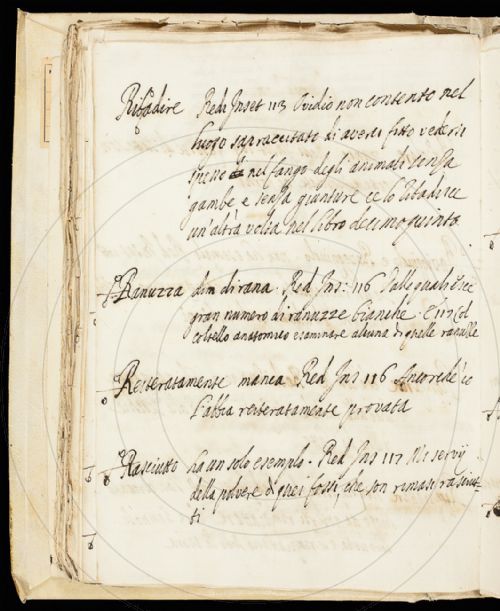 Ribadire Redi Inset 113 Ovidio non contento nel
luogo sopraccitato di averci fatto vedere
nel fango degli animali senza
gambe e senza giunture ce lo ribadisce
un'altra volta nel libro decimoquinto.
Ranuzza dim di rana. Red Ins: 116 Dalle quali
gran numero di ranuzze bianche. E 117 Col
coltello anatomico esaminare alcuna di quelle ranuzze
Reiteratamente manca Red Ins 116 Ancorchè io
l'abbia reiteratamente provata
Rasciutto ha un solo esempio. Red Ins 117 Mi servij
della polvere di quei fossi, che son rimasi rasciut-
ti